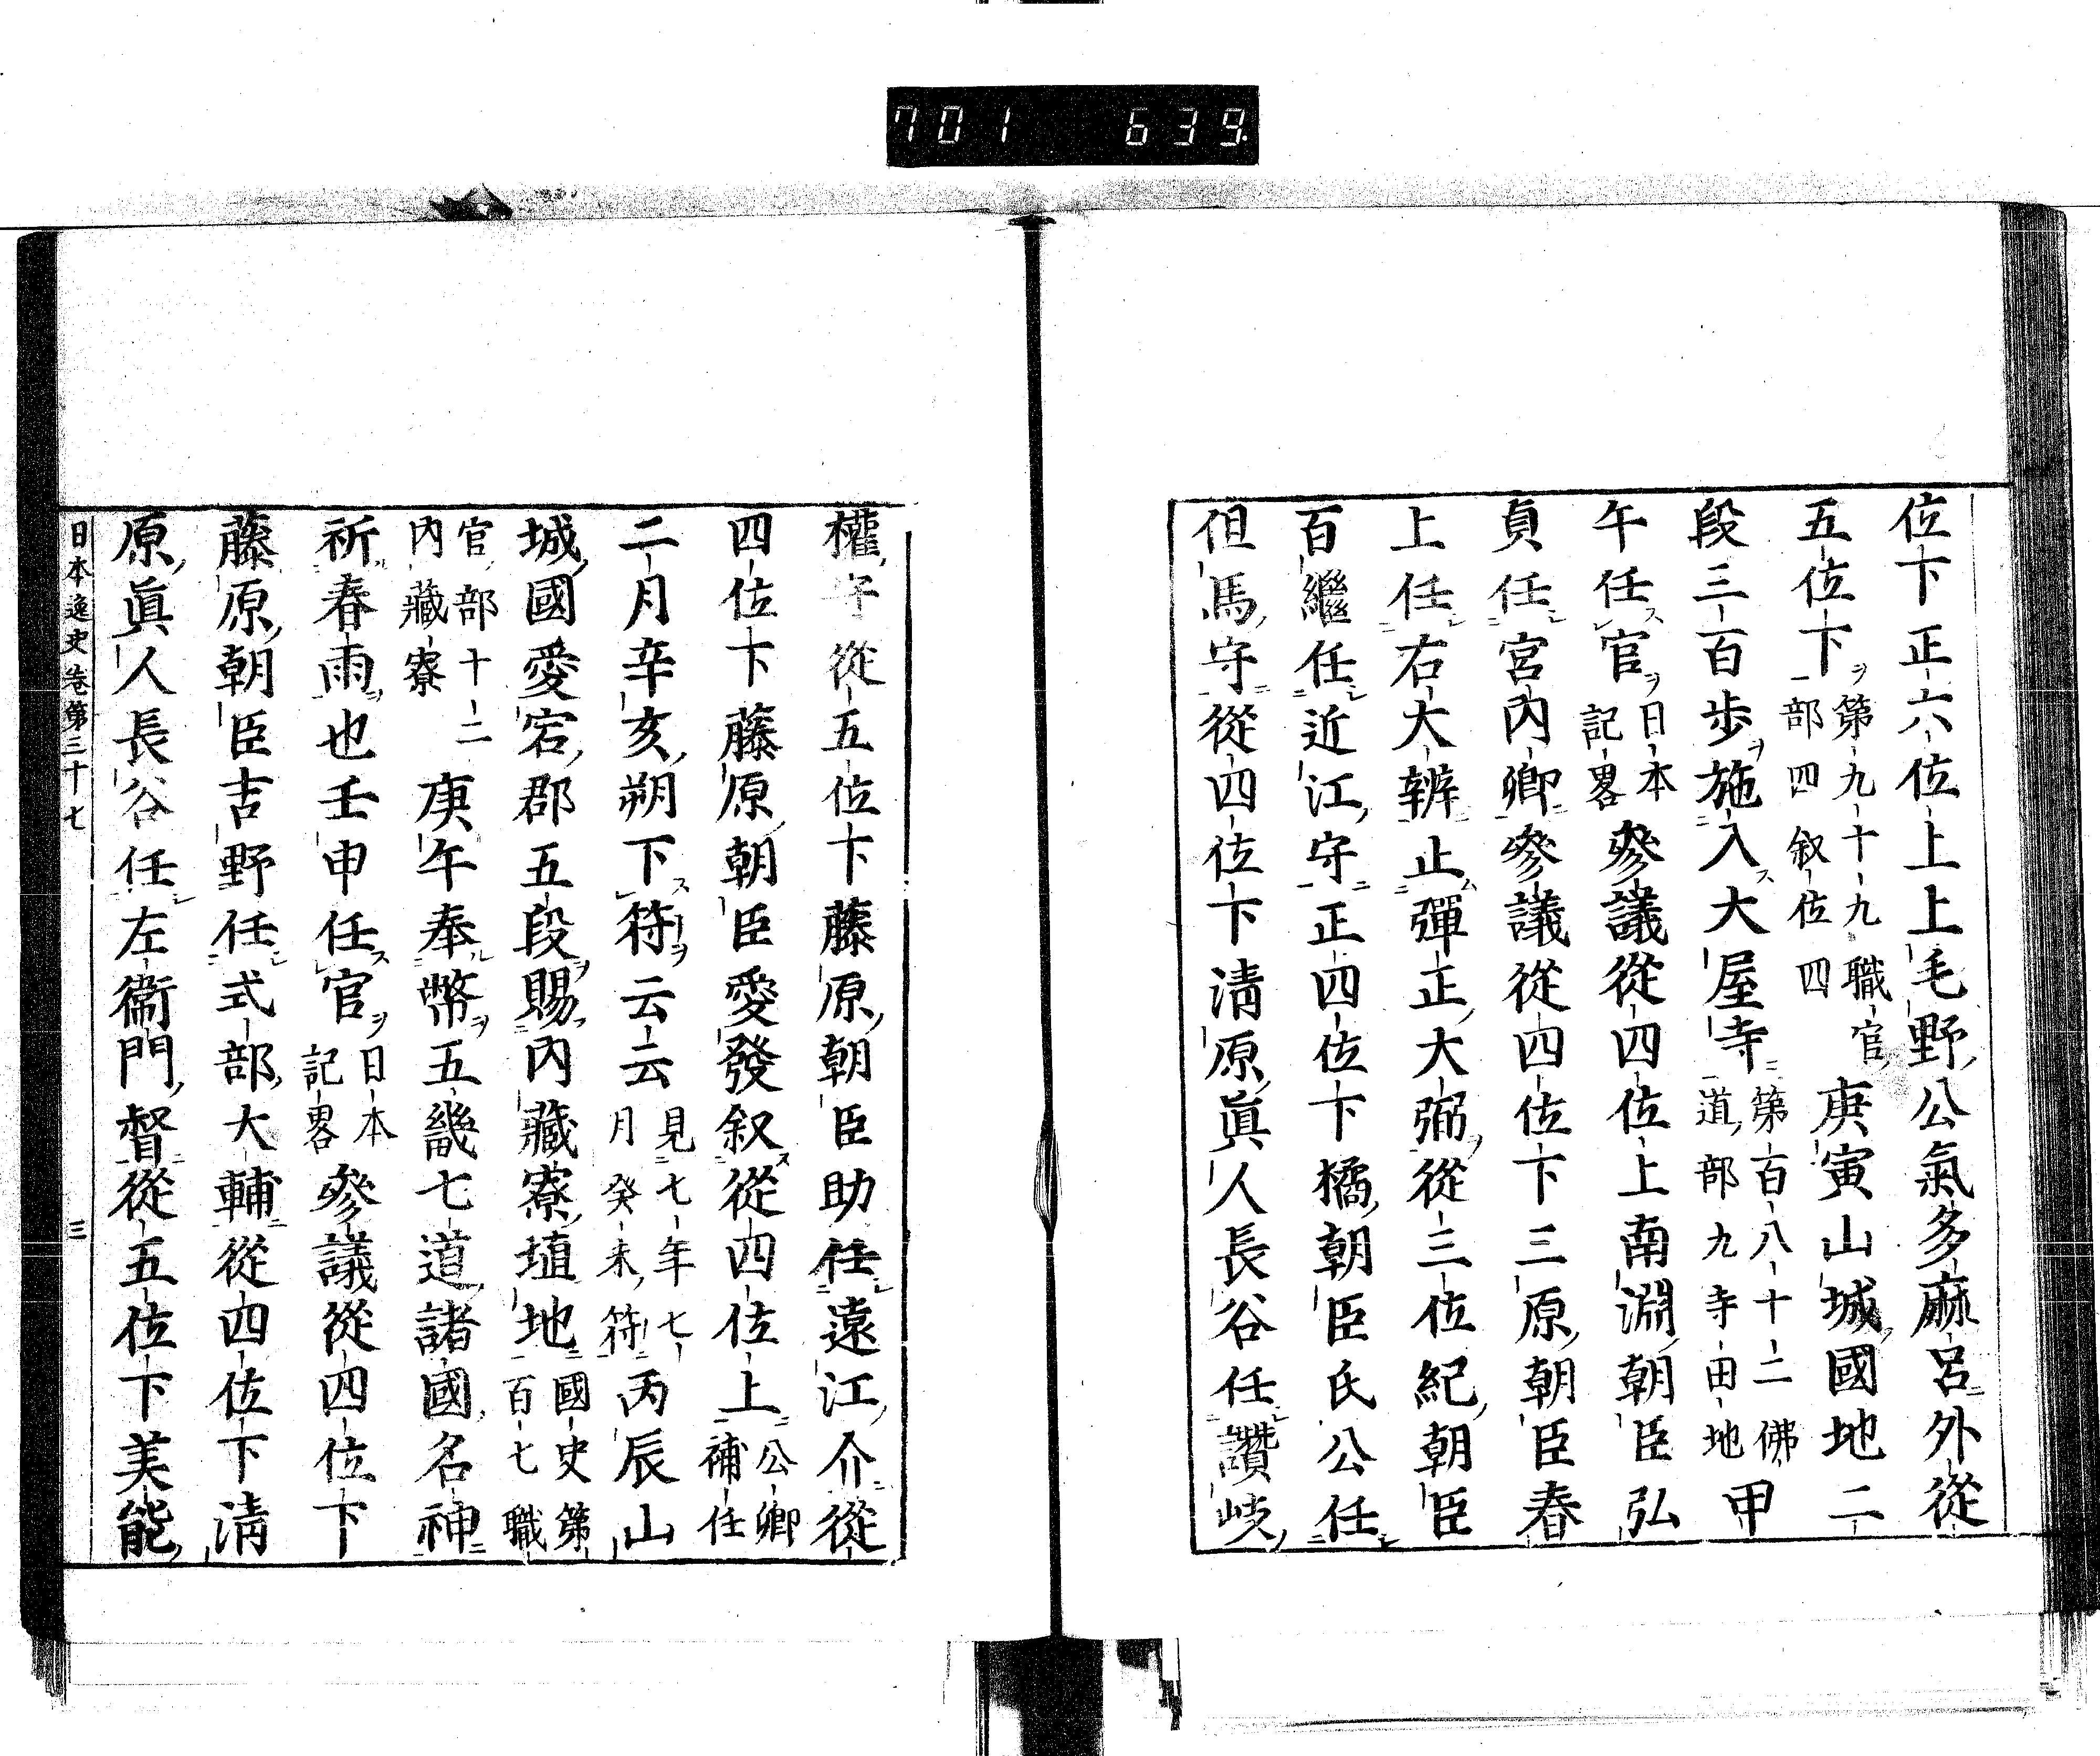 701 639
位下正六位上上毛野公氣多麻呂外從
五位下ヲ第九十九職官
部四叙位四庚寅山城國地二
段三百歩ヲ施入ス大屋寺第百八十二佛
道部九寺田地甲
午任ス官ヲ日本
記畧參議從四位上南淵朝臣弘
貞任宮內卿參議從四位下三原朝臣春
上任右大辨止彈正大弼從三位紀朝臣
百繼任近江守正四位下橘朝臣氏公任
但馬守從四位下淸原眞人長谷任讚岐
權守從五位下藤原朝臣助任遠江介從
四位下藤原朝臣愛發叙ス從四位上公卿
補任
二月辛亥朔下ス符ヲ云云見七年七
月癸未符丙辰山
城國愛宕郡五段ヲ賜フ內藏寮埴地國史第
百七職
官部十二
內藏寮庚午奉ル幣ヲ五畿七道諸國名神
祈春雨ヲ也壬申任ス官ヲ日本
記畧參議從四位下
藤原朝臣吉野任式部大輔從四位下淸
原眞人長谷任左衞門督從五位下美能
日本逸史卷第三十七 三